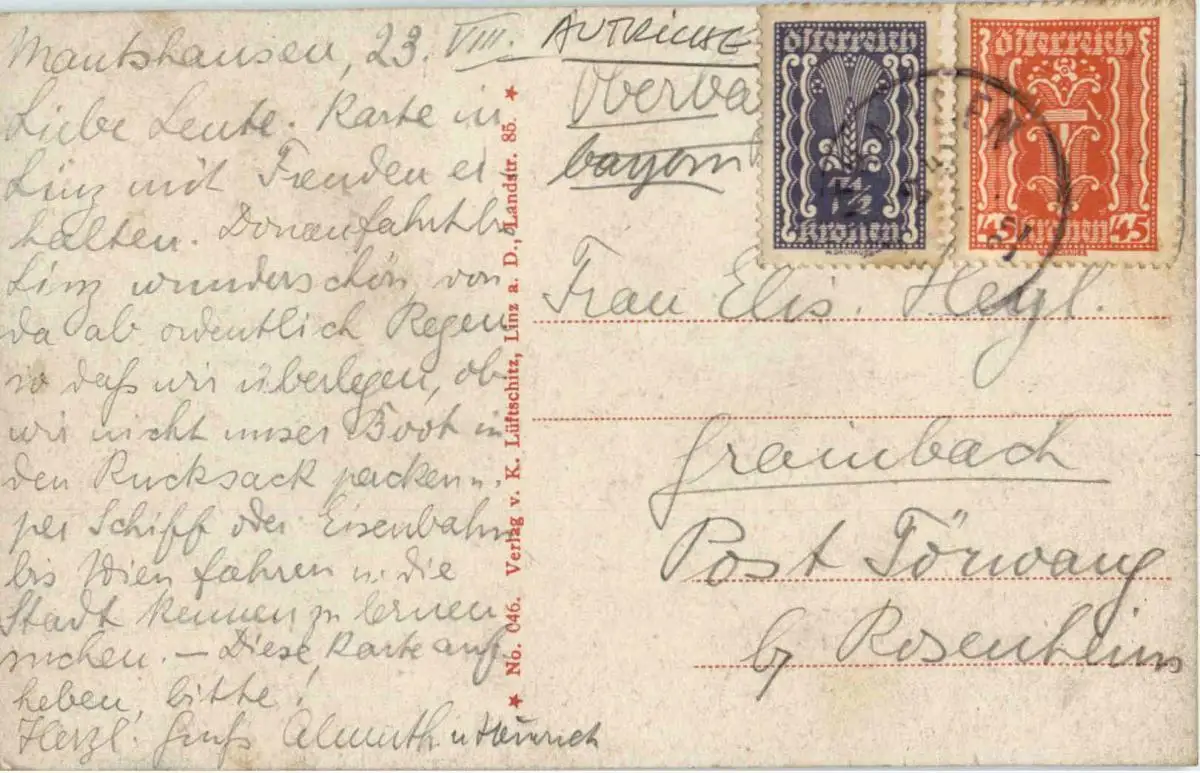 Mautshausen, 23. VIII.
Liebe Leute. Karte in
Linz mit Freuden er-
halten. Donaufahrt bis
Linz wunderschön, von
da ab ordentlich Regen
so daß wir überlegen, ob
wir nicht unser Boot in
den Rucksack packen u.
per Schiff oder Eisenbahn
bis Wien fahren u. die
Stadt kennen zu lernen
suchen. — Diese Karte auf-
heben, bitte!
Herzl. Gruß Almuth u Heinrich
★ No. 046. Verlag v. K. Lüftschitz, Linz a. D., Landstr. 85. ★
AUTRICHE
Oberba
bayern
österreich
7½
kronen
österreich
45 kronen 45
Frau Elis. Heigl.
Grainbach
Post Törwang
b/ Rosenheim